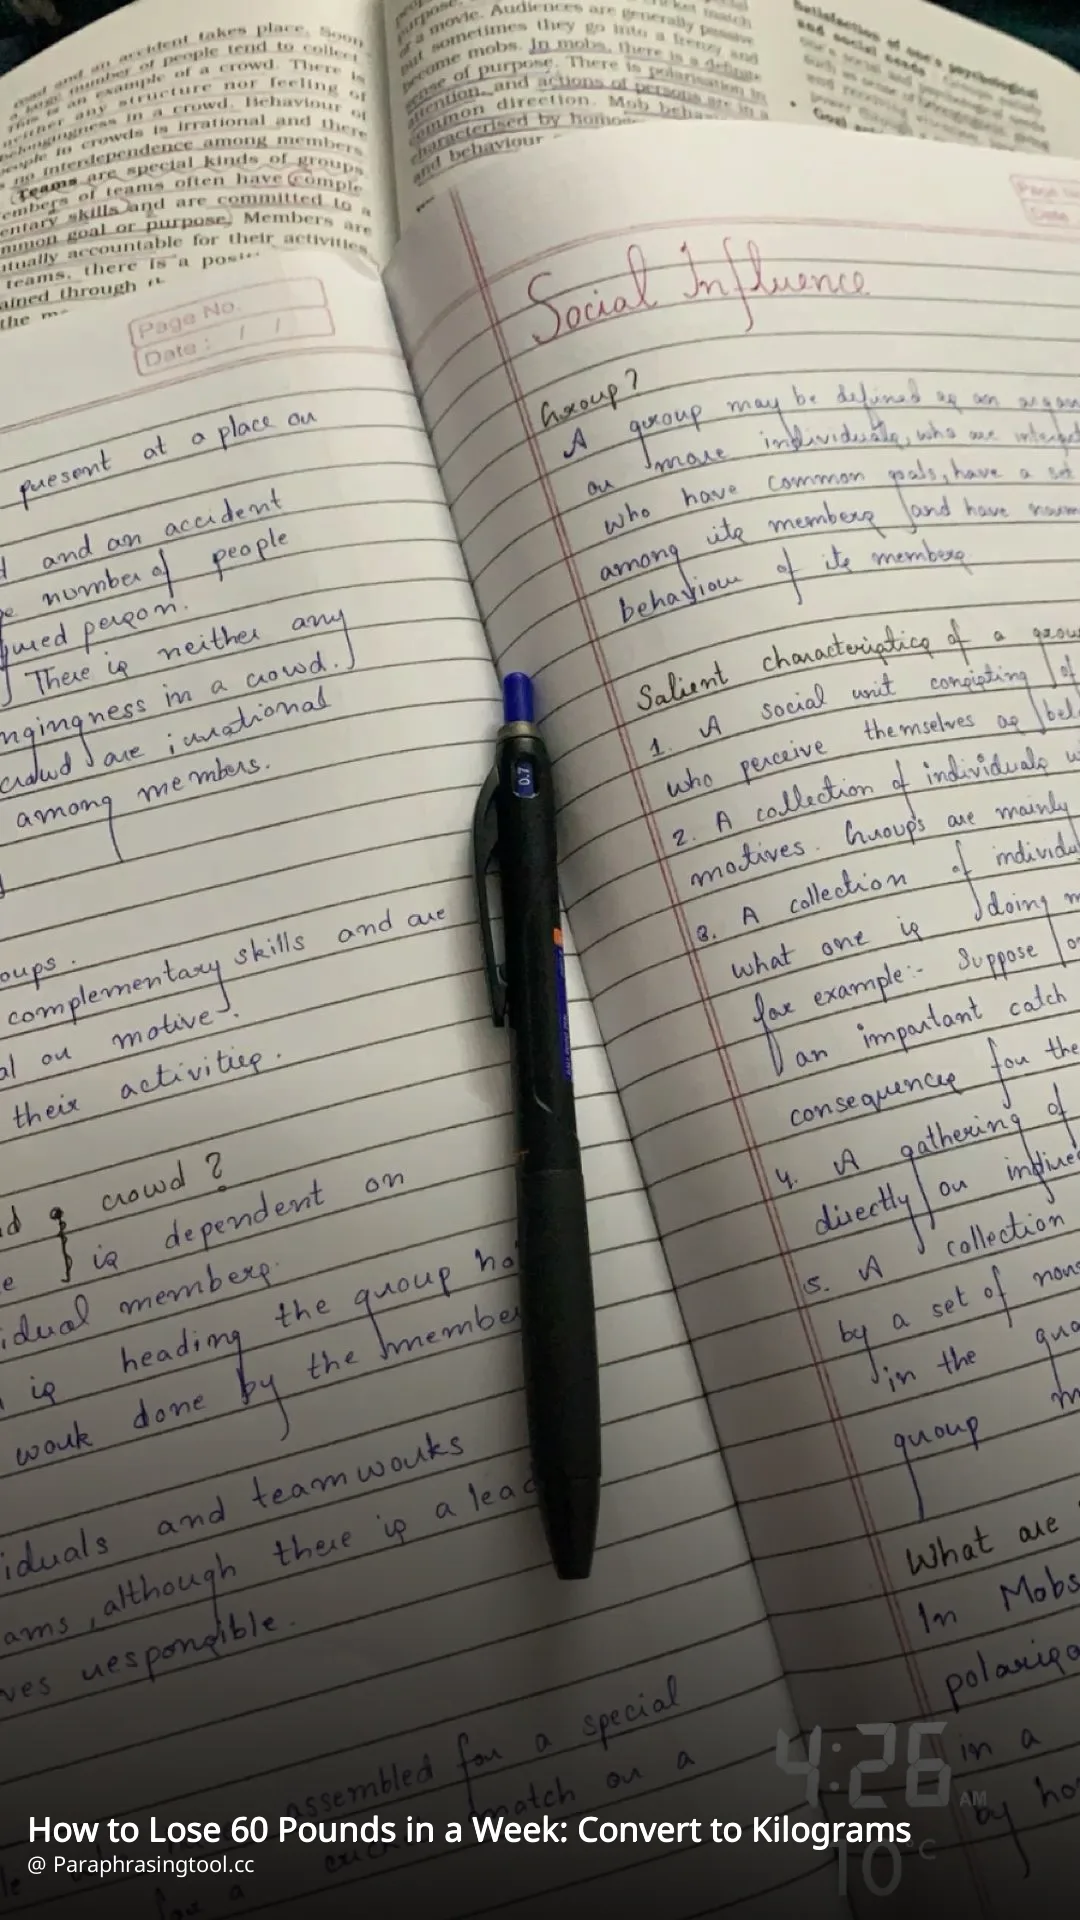 road and an accident takes place. Soon
a large number of people tend to collect.
This is an example of a crowd. There is
neither any structure nor feeling of
belongingness in a crowd. Behaviour of
people in crowds is irrational and there
is no interdependence among members
Teams are special kinds of groups
embers of teams often have comple
entary skills and are committed to a
mmon goal or purpose. Members are
utually accountable for their activities
teams, there is a posit
ained through
the m
of a movie. Audiences are generally passive
but sometimes they go into a frenzy and
become mobs. In mobs, there is a definite
sense of purpose. There is polarisation in
attention, and actions of persons are in a
common direction. Mob behav
characterised by homog
and behaviour
Satisfaction of one's psychological
and social needs
Goal
Page No.
Date : / /
present at a place ou
d and an accident
ge number of people
jured person.
There is neither any
ngingness in a crowd.
crowd are irrational
among members.
oups.
complementary skills and are
al ou motive.
their activities.
nd crowd ?
e is dependent on
idual members.
is heading the group ho
work done by the member
iduals and teamworks
ams, although there is a lead
ves responsible.
assembled for a special
cricket match or a
for a
Page No
Date
Social Influence
Group?
A group may be defined as an organ
or more individuals, who are interact
who have common goals, have a set
among its members and have norm
behaviour of its members.
Salient characteristics of a grou
1. A social unit consisting of
who perceive themselves as belo
2. A collection of individuals w
motives. Groups are mainly
3. A collection of individu
what one is doing m
for example:- Suppose
an important catch
consequences for the
4. A gathering of
directly or indire
5. A collection
by a set of norm
in the grou
group m
What are
In Mobs
polarisa
in a
by ho
0.7
4:26 AM
10°C
How to Lose 60 Pounds in a Week: Convert to Kilograms
@ Paraphrasingtool.cc